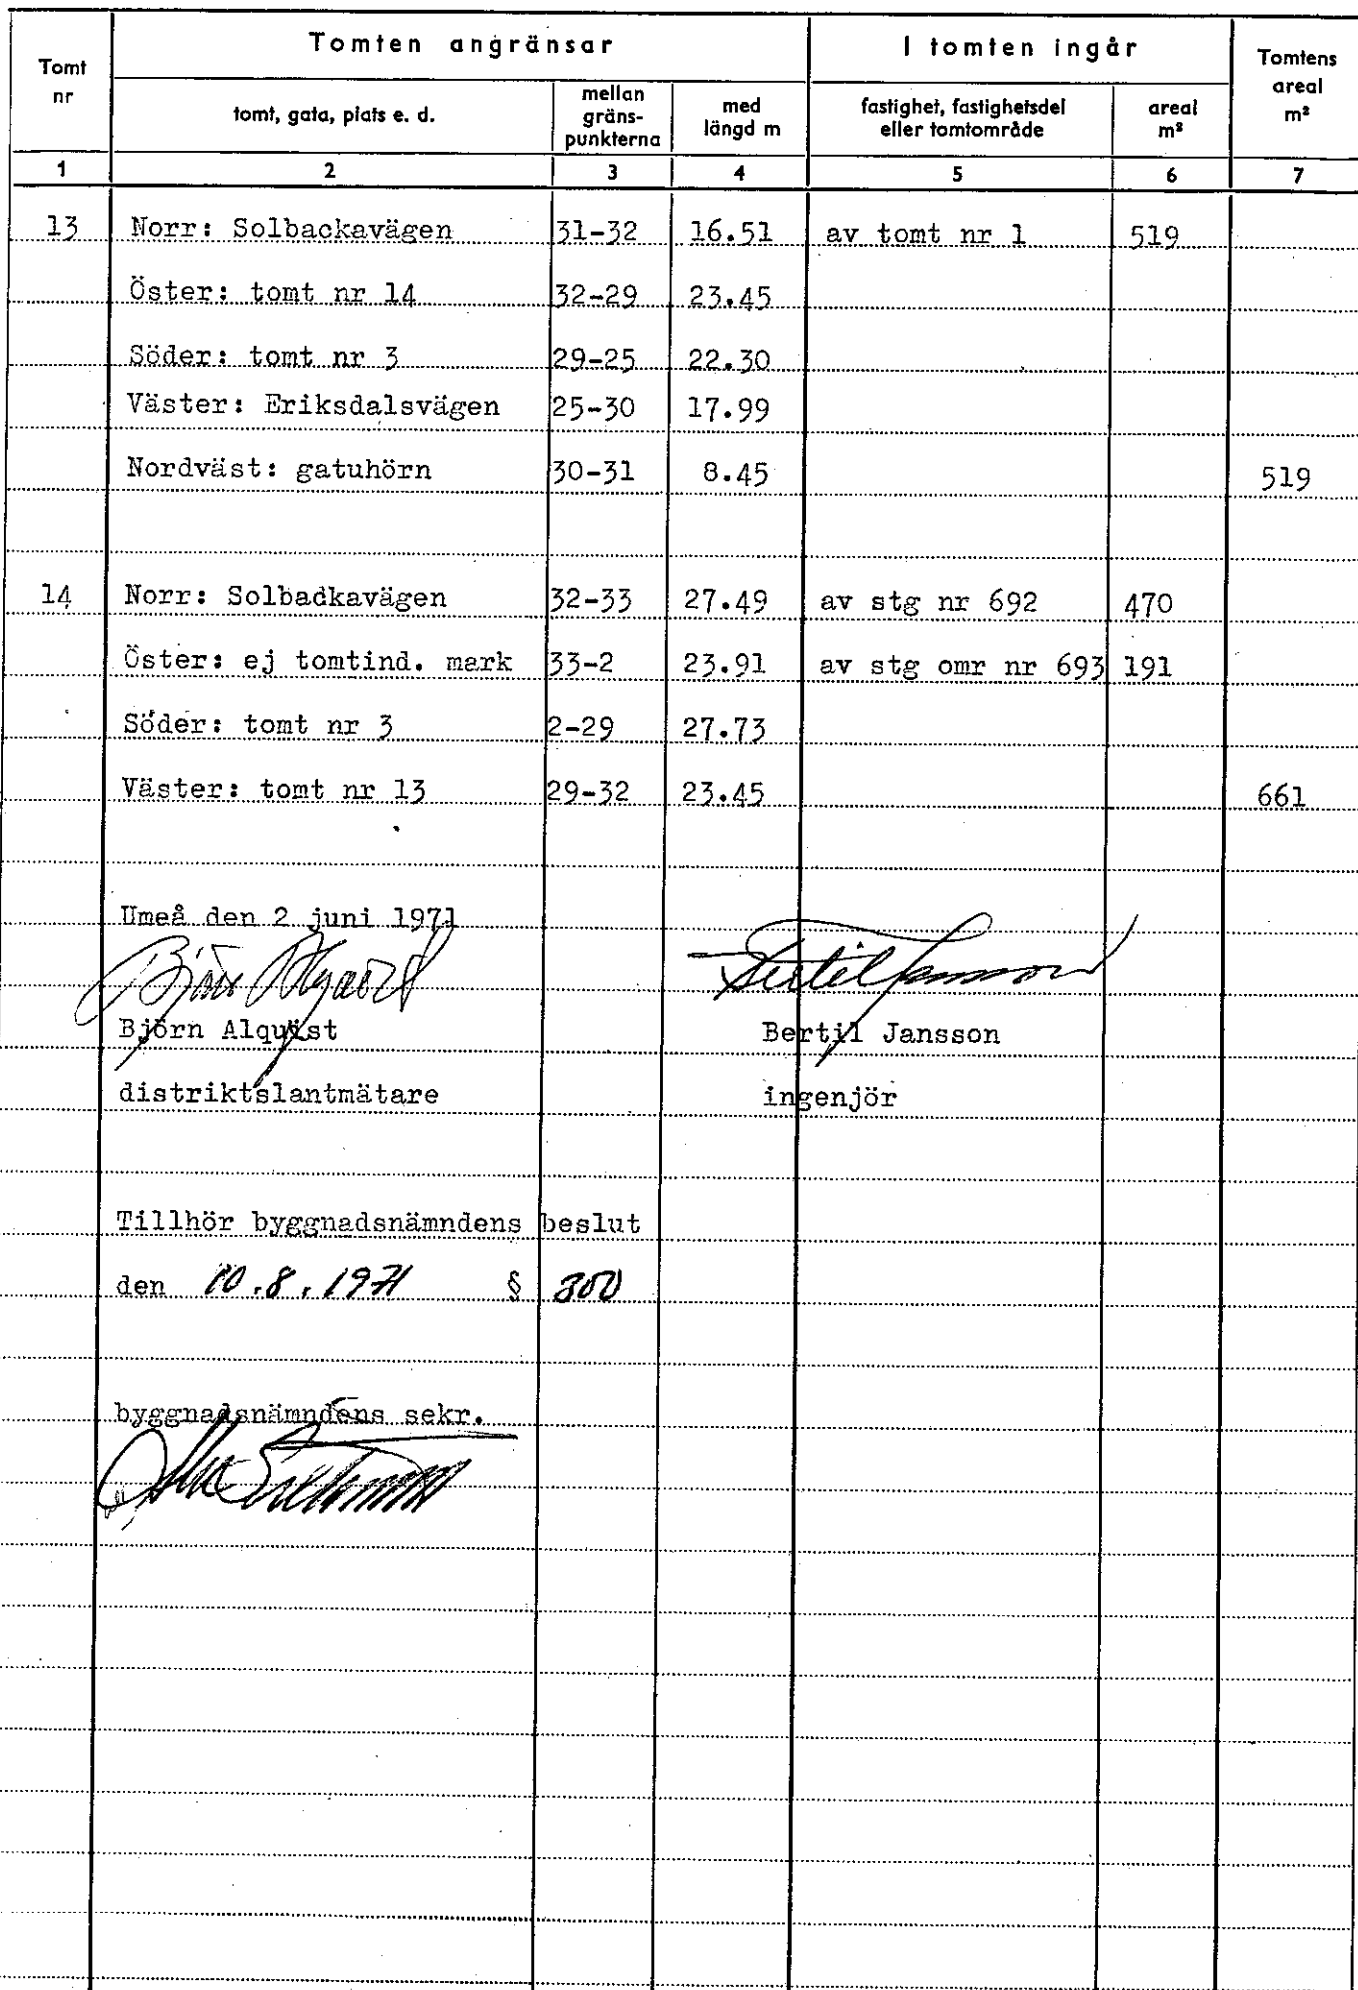 Tomt nr
Tomten angränsar
I tomten ingår
Tomtens areal m²
tomt, gata, plats e. d.
mellan gräns-punkterna
med längd m
fastighet, fastighetsdel eller tomtområde
areal m²
1 2 3 4 5 6 7
13 Norr: Solbackavägen 31-32 16.51 av tomt nr 1 519
Öster: tomt nr 14 32-29 23.45
Söder: tomt nr 3 29-25 22.30
Väster: Eriksdalsvägen 25-30 17.99
Nordväst: gatuhörn 30-31 8.45 519
14 Norr: Solbadkavägen 32-33 27.49 av stg nr 692 470
Öster: ej tomtind. mark 33-2 23.91 av stg omr nr 693 191
Söder: tomt nr 3 2-29 27.73
Väster: tomt nr 13 29-32 23.45 661
Umeå den 2 juni 1971
Björn Alquist Bertil Jansson
distriktslantmätare ingenjör
Tillhör byggnadsnämndens beslut
den 10.8.1971 § 300
byggnadsnämndens sekr.